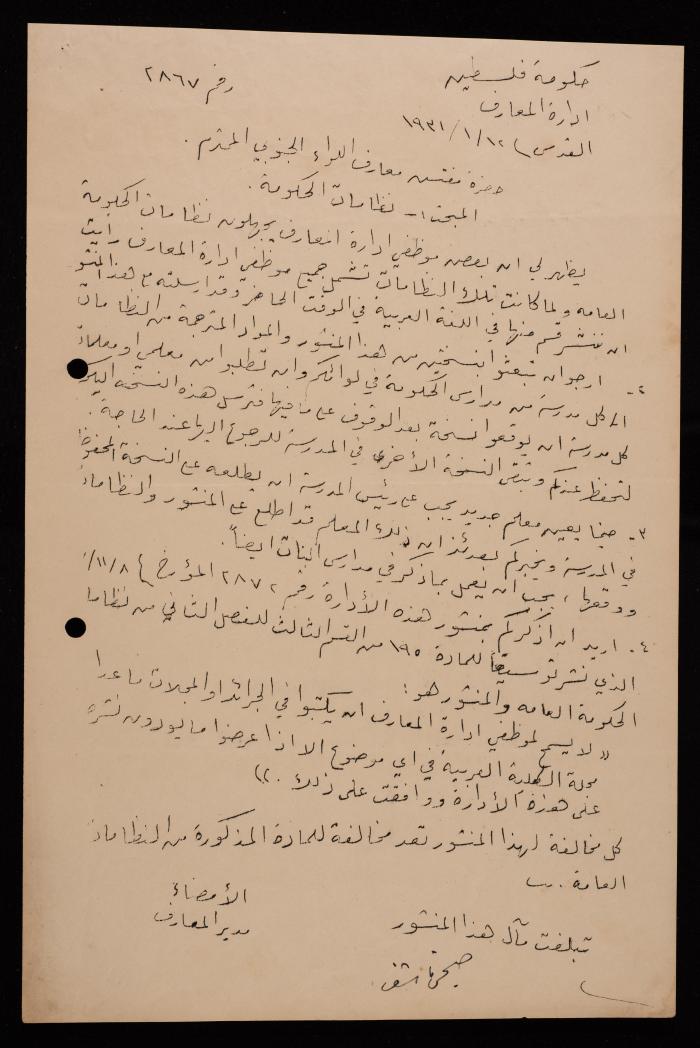 حكومة فلسطين
رقم ٢٨٦٧
ادارة المعارف
القدس ١٢/١/١٩٣١
حضرة مفتش معارف اللواء الجنوبي المحترم .
المبحث :- نظامات الحكومة .
يظهر لي ان بعض موظفي ادارة المعارف يجهلون نظامات الحكومة
العامه ولما كانت تلك النظامات تشمل جميع موظفي ادارة المعارف رأيت
ان ننشر قسم منها في اللغة العربية في الوقت الحاضر وقد ارسلته مع هذا المنشو
٢- ارجو ان تبعثوا بنسختين من هذا المنشور والمواد المترجمة من النظامات
الى كل مدرسة من مدارس الحكومة في لوائكم وان تطلبوا من معلمي او معلمات
كل مدرسة ان يوقعوا نسخة بعد الوقوف على ما فيها فترسل هذه النسخة اليكم
لتحفظ عندكم وتبقى النسخة الأخرى في المدرسة للرجوع اليها عند الحاجة .
٣- حينما يعين معلم جديد يجب على رئيس المدرسة ان يطلعه على النسخة المحفوظة
في المدرسة ويخبركم بعدئذ ان ذلك المعلم قد اطلع على المنشور والنظامات
ووقعها ، يجب ان يعمل بما ذكر في مدارس البنات ايضاً .
٤- اريد ان اذكركم بمنشور هذه الأدارة رقم ٢٨٧٢ المؤرخ ٨/١١/
الذي نشر توسيعاً للمادة ١٩٥ من القسم الثالث للفصل الثاني من نظاما
الحكومة العامه والمنشور هو :
« لا يسمح لموظفي ادارة المعارف ان يكتبوا في الجرائد او المجلات ما عدا
مجلة الكلية العربية في اي موضوع الا اذا عرضوا ما يودون نشره
على هذه الأدارة ووافقت على ذلك . »
كل مخالفة لهذا المنشور تعد مخالفة للمادة المذكورة من النظامات
العامة .
الأمضاء
مدير المعارف
تبلغت مآل هذا المنشور
صبحي